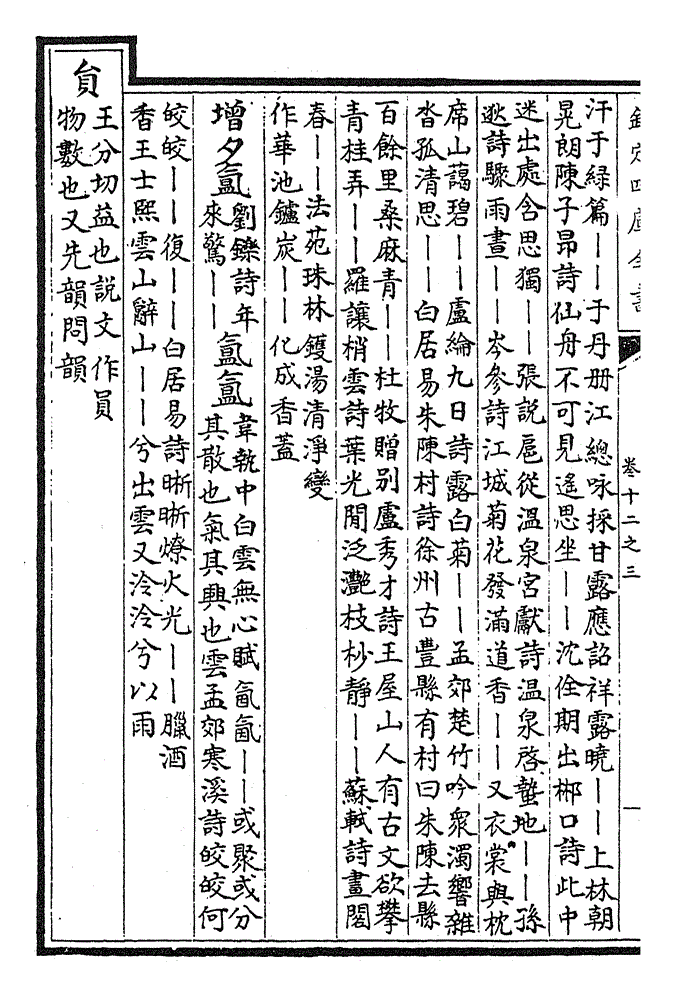 欽定四庫全書
卷十二之三
汗于緑篇——于丹册江總咏採甘露應詔祥露曉——上林朝
晃朗陳子昻詩仙舟不可見遙思坐——沈佺期出郴口詩此中
迷出處含思獨——張説扈從溫泉宫獻詩溫泉啓蟄地——孫
逖詩驟雨晝——岑參詩江城菊花發滿道香——又衣裳與枕
席山藹碧——盧綸九日詩露白菊——孟郊楚竹吟衆濁響雜
沓孤清思——白居易朱陳村詩徐州古豐縣有村曰朱陳去縣
百餘里桑麻青——杜牧贈别盧秀才詩王屋山人有古文欲攀
青桂弄——羅讓梢雲詩葉光閒泛灧枝杪靜——蘇軾詩畫閣
春——法苑珠林鑊湯清淨變
作華池鑪炭——化成香蓋
增夕氳劉鑠詩年
來驚——氳氳韋執中白雲無心賦氤氳——或聚或分
其散也氣其興也雲孟郊寒溪詩皎皎何
皎皎——復——白居易詩晰晰燎火光——臘酒
香王士熙雲山辭山——兮出雲又泠泠兮以雨
貟
王分切益也説文作員
物數也又先韻問韻